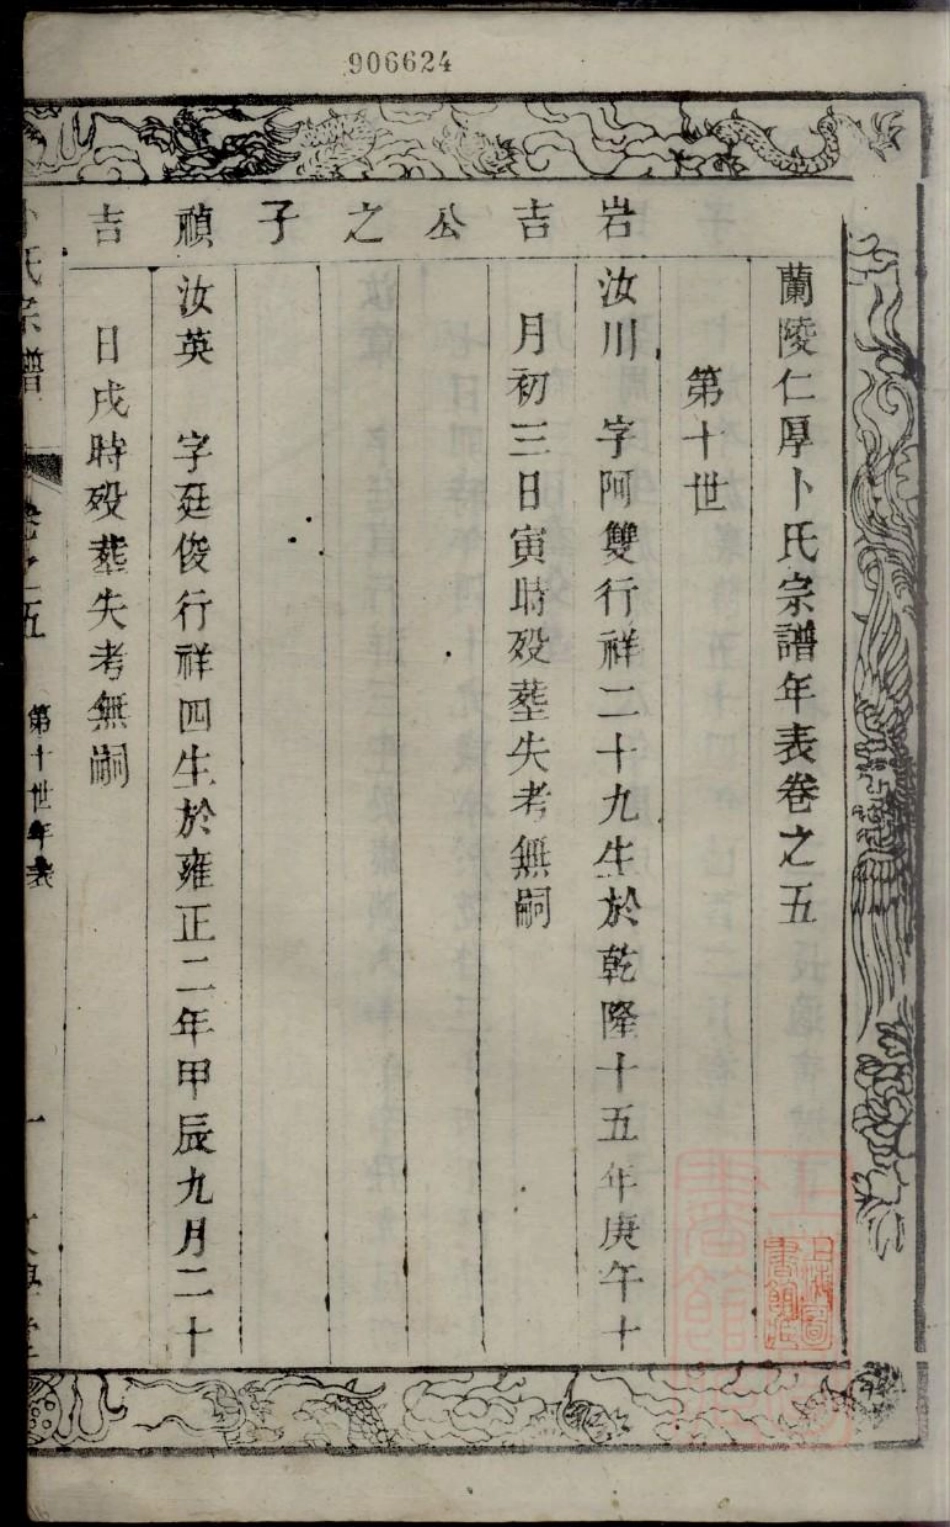 906624
蘭陵仁厚卜氏宗譜年表卷之五
第十世
岩吉公之子禎吉
汝川 字阿雙行祥二十九生於乾隆十五年庚午十
月初三日寅時殁塟失考無嗣
汝英 字廷俊行祥四生於雍正二年甲辰九月二十
日戌時殁塟失考無嗣
卜氏宗譜 卷之五 第十世年表 一